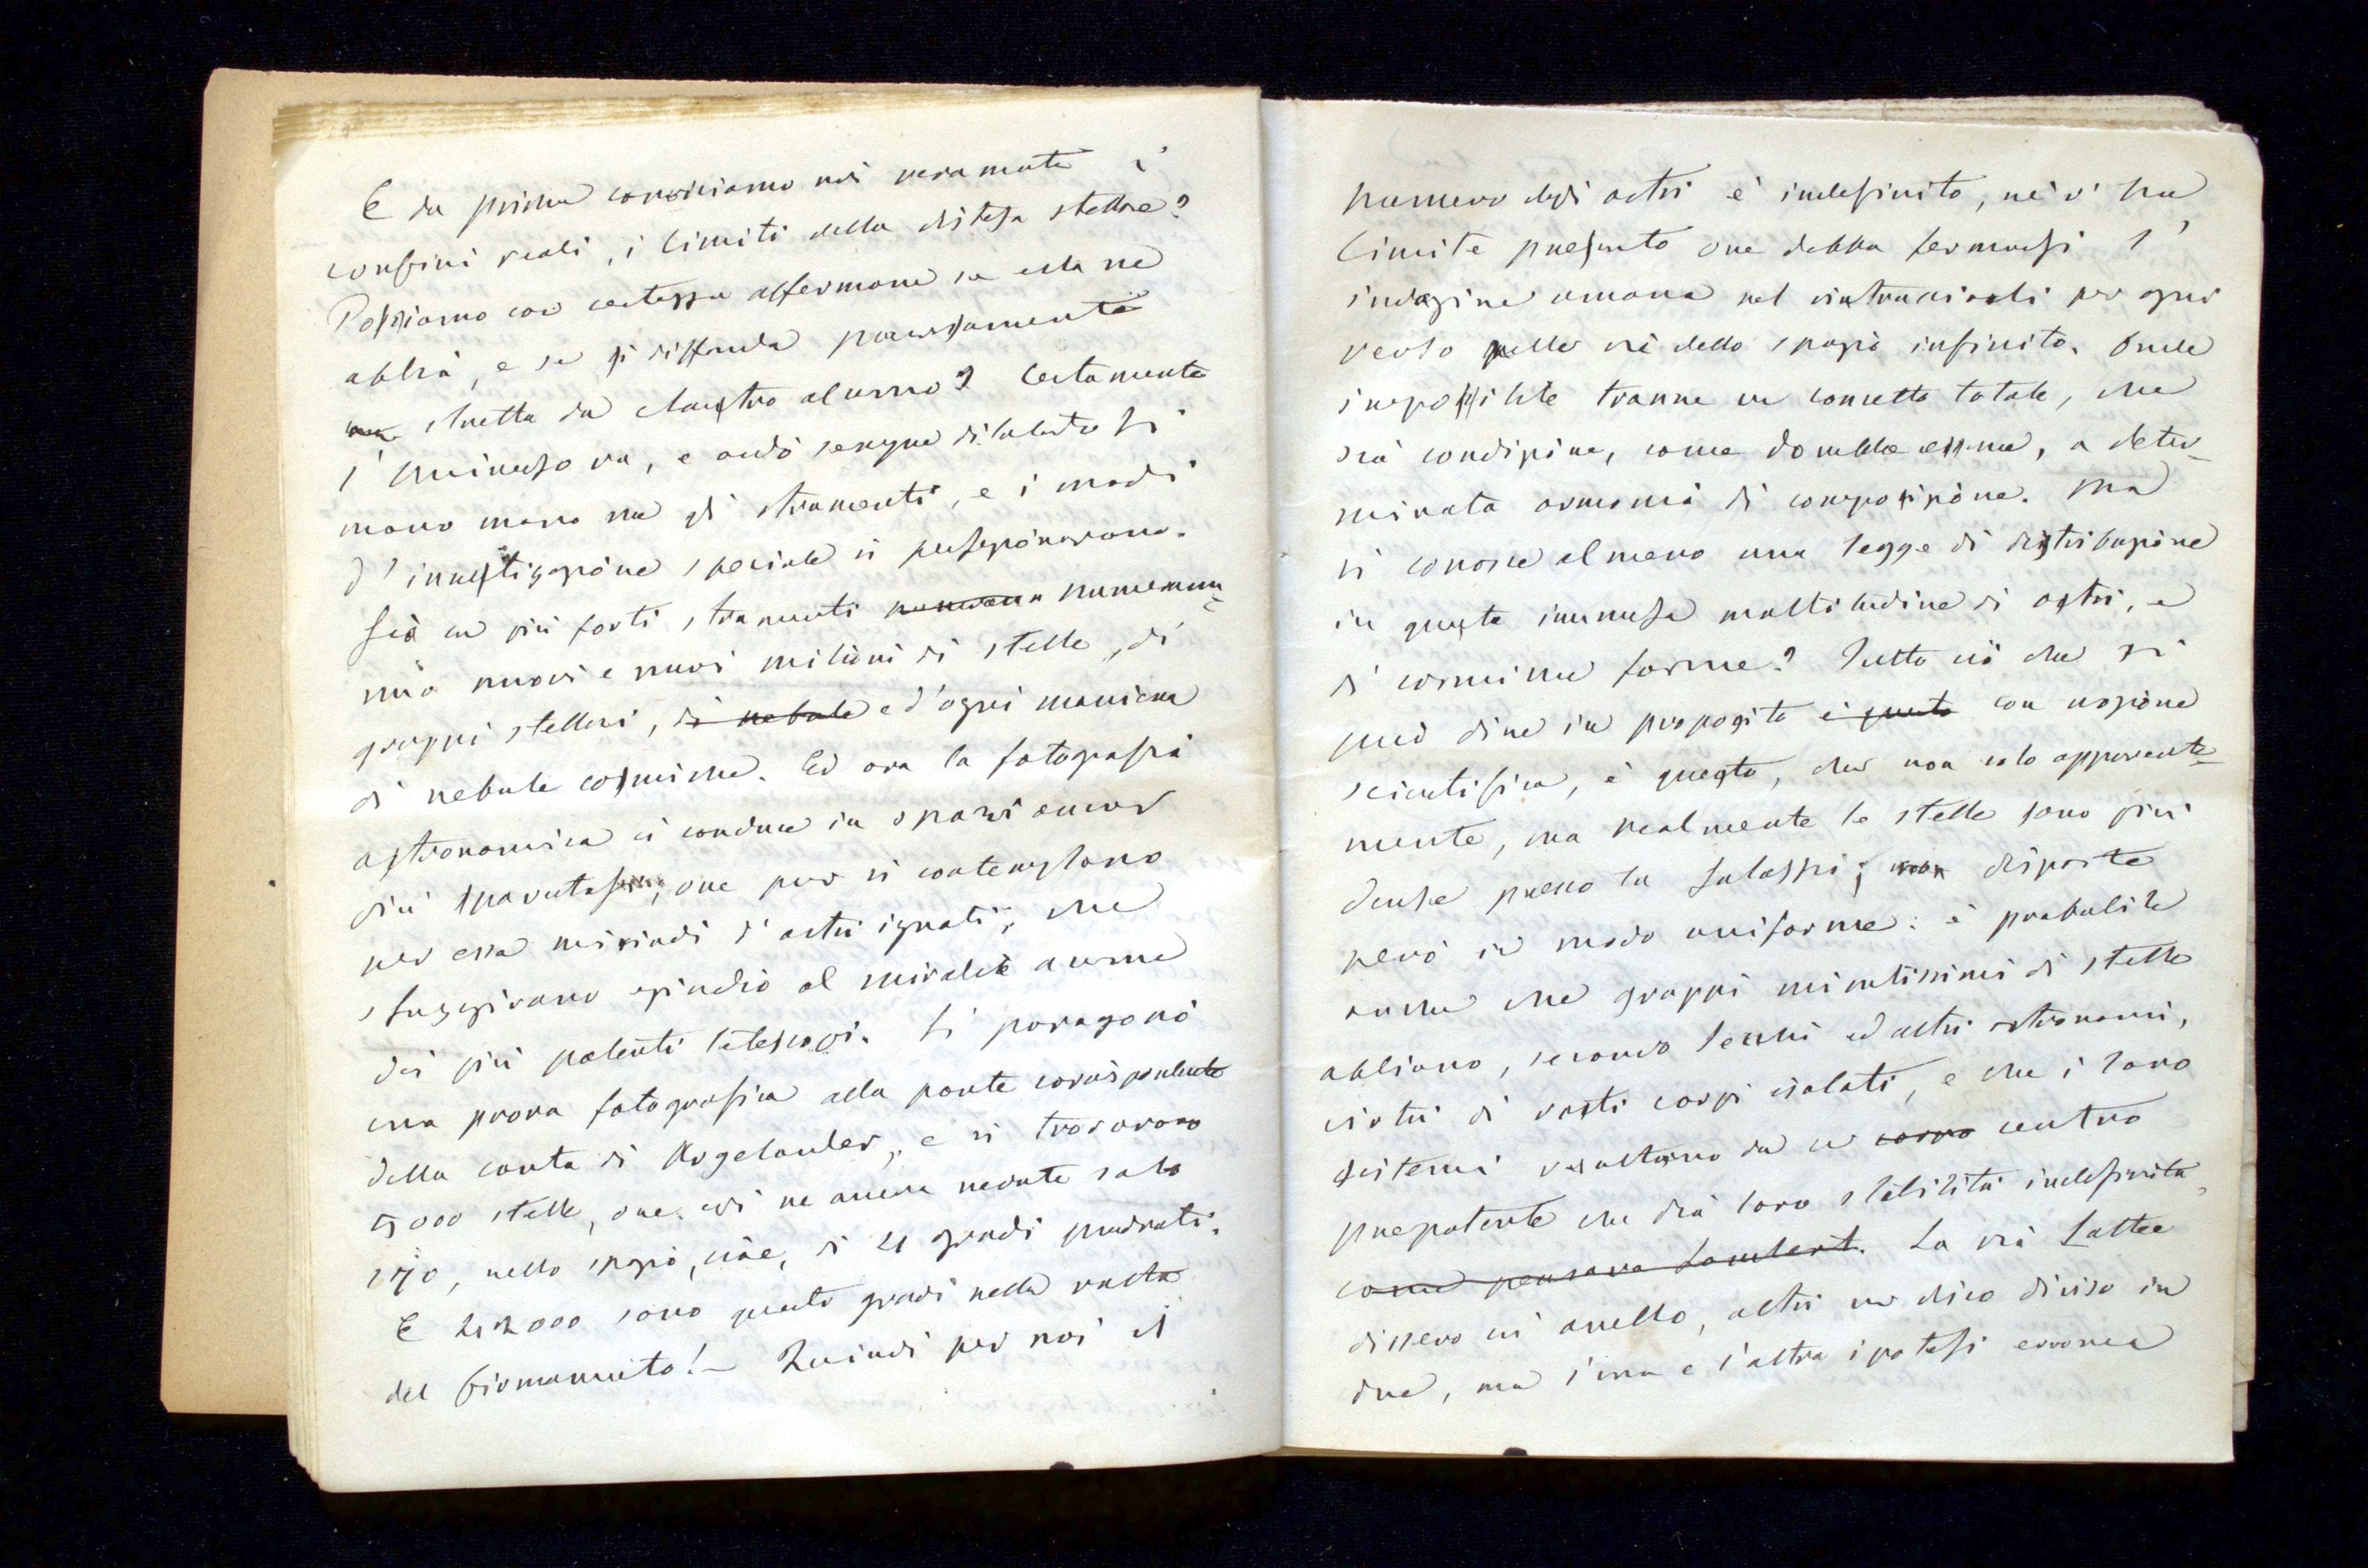 E da prima conosciamo noi veramente i
confini reali, i limiti della distesa stellare?
Possiamo con certezza affermare se essa ne
abbia, e se si diffonda
stretta da claustro alcuno? Certamente
l'Universo va, e andò sempre dilatandosi
mano mano che gli strumenti, e i modi
d'investigazione speciale si perfezionarono.
Già coi più forti strumenti numeram-
mo nuovi e nuovi milioni di stelle, di
gruppi stellari, di nebule e d'ogni maniera
di nebule cosmiche. Ed ora la fotografia
astronomica ci conduce in spazi ancor
più ove pur si contemplano
per essa miriadi d'astri ignoti, che
sfuggirono eziandio al mirabile acume
dei più potenti telescopi. Si paragonò
una prova fotografica alla parte corrispondente
della carta di Argelander, e si trovarono
5000 stelle, ove ei ne aveva vedute solo
170, nello spazio, cioè, di 4 gradi quadrati.
E 42000 sono questi gradi nella vasta
del firmamento! – Quindi per noi il
numero degli astri è indefinito, nè v'ha
limite presunto ove debba fermarsi l'
indagine umana nel rintracciarli per ogni
verso nelle vie dello spazio infinito. Onde
impossibile trarne un concetto totale, che
sia condizione, come dovrebbe essere, a deter-
minata armonia di composizione. Ma
si conosce almeno una legge di distribuzione
in questa immensa moltitudine di astri, e
di cosmiche forme? Tutto ciò che si
può dire in proposito è questo con nozione
scientifica, è questo, che non solo apparente-
mente, ma realmente le stelle sono più
dense presso la Galassia; non disposte
però in modo uniforme: è probabile
anche che gruppi minutissimi di stelle
abbiano, secondo Secchi ed altri astronomi,
virtù di vasti corpi isolati, e che i loro
sistemi resultino da un corpo centro
prepotente che dia loro stabilità indefinita,
come pensava Lambert. La via Lattea
dissero un anello, altri un disco diviso in
due, ma l'una e l'altra ipotesi erronea